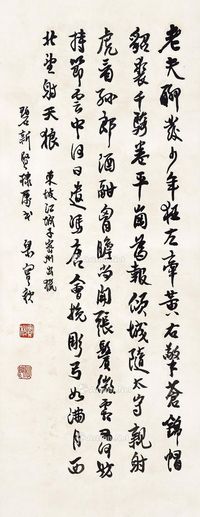 老夫聊發少年狂左牽黃右擎蒼錦帽
貂裘千騎卷平岡為報傾城隨太守親射
虎看孫郎酒酣胷膽尚開張鬢微霜又何妨
持節雲中何日遣馮唐會挽彫弓如滿月西
北望射天狼
東坡江城子密州出獵
新賢棣屬書 梁寒操